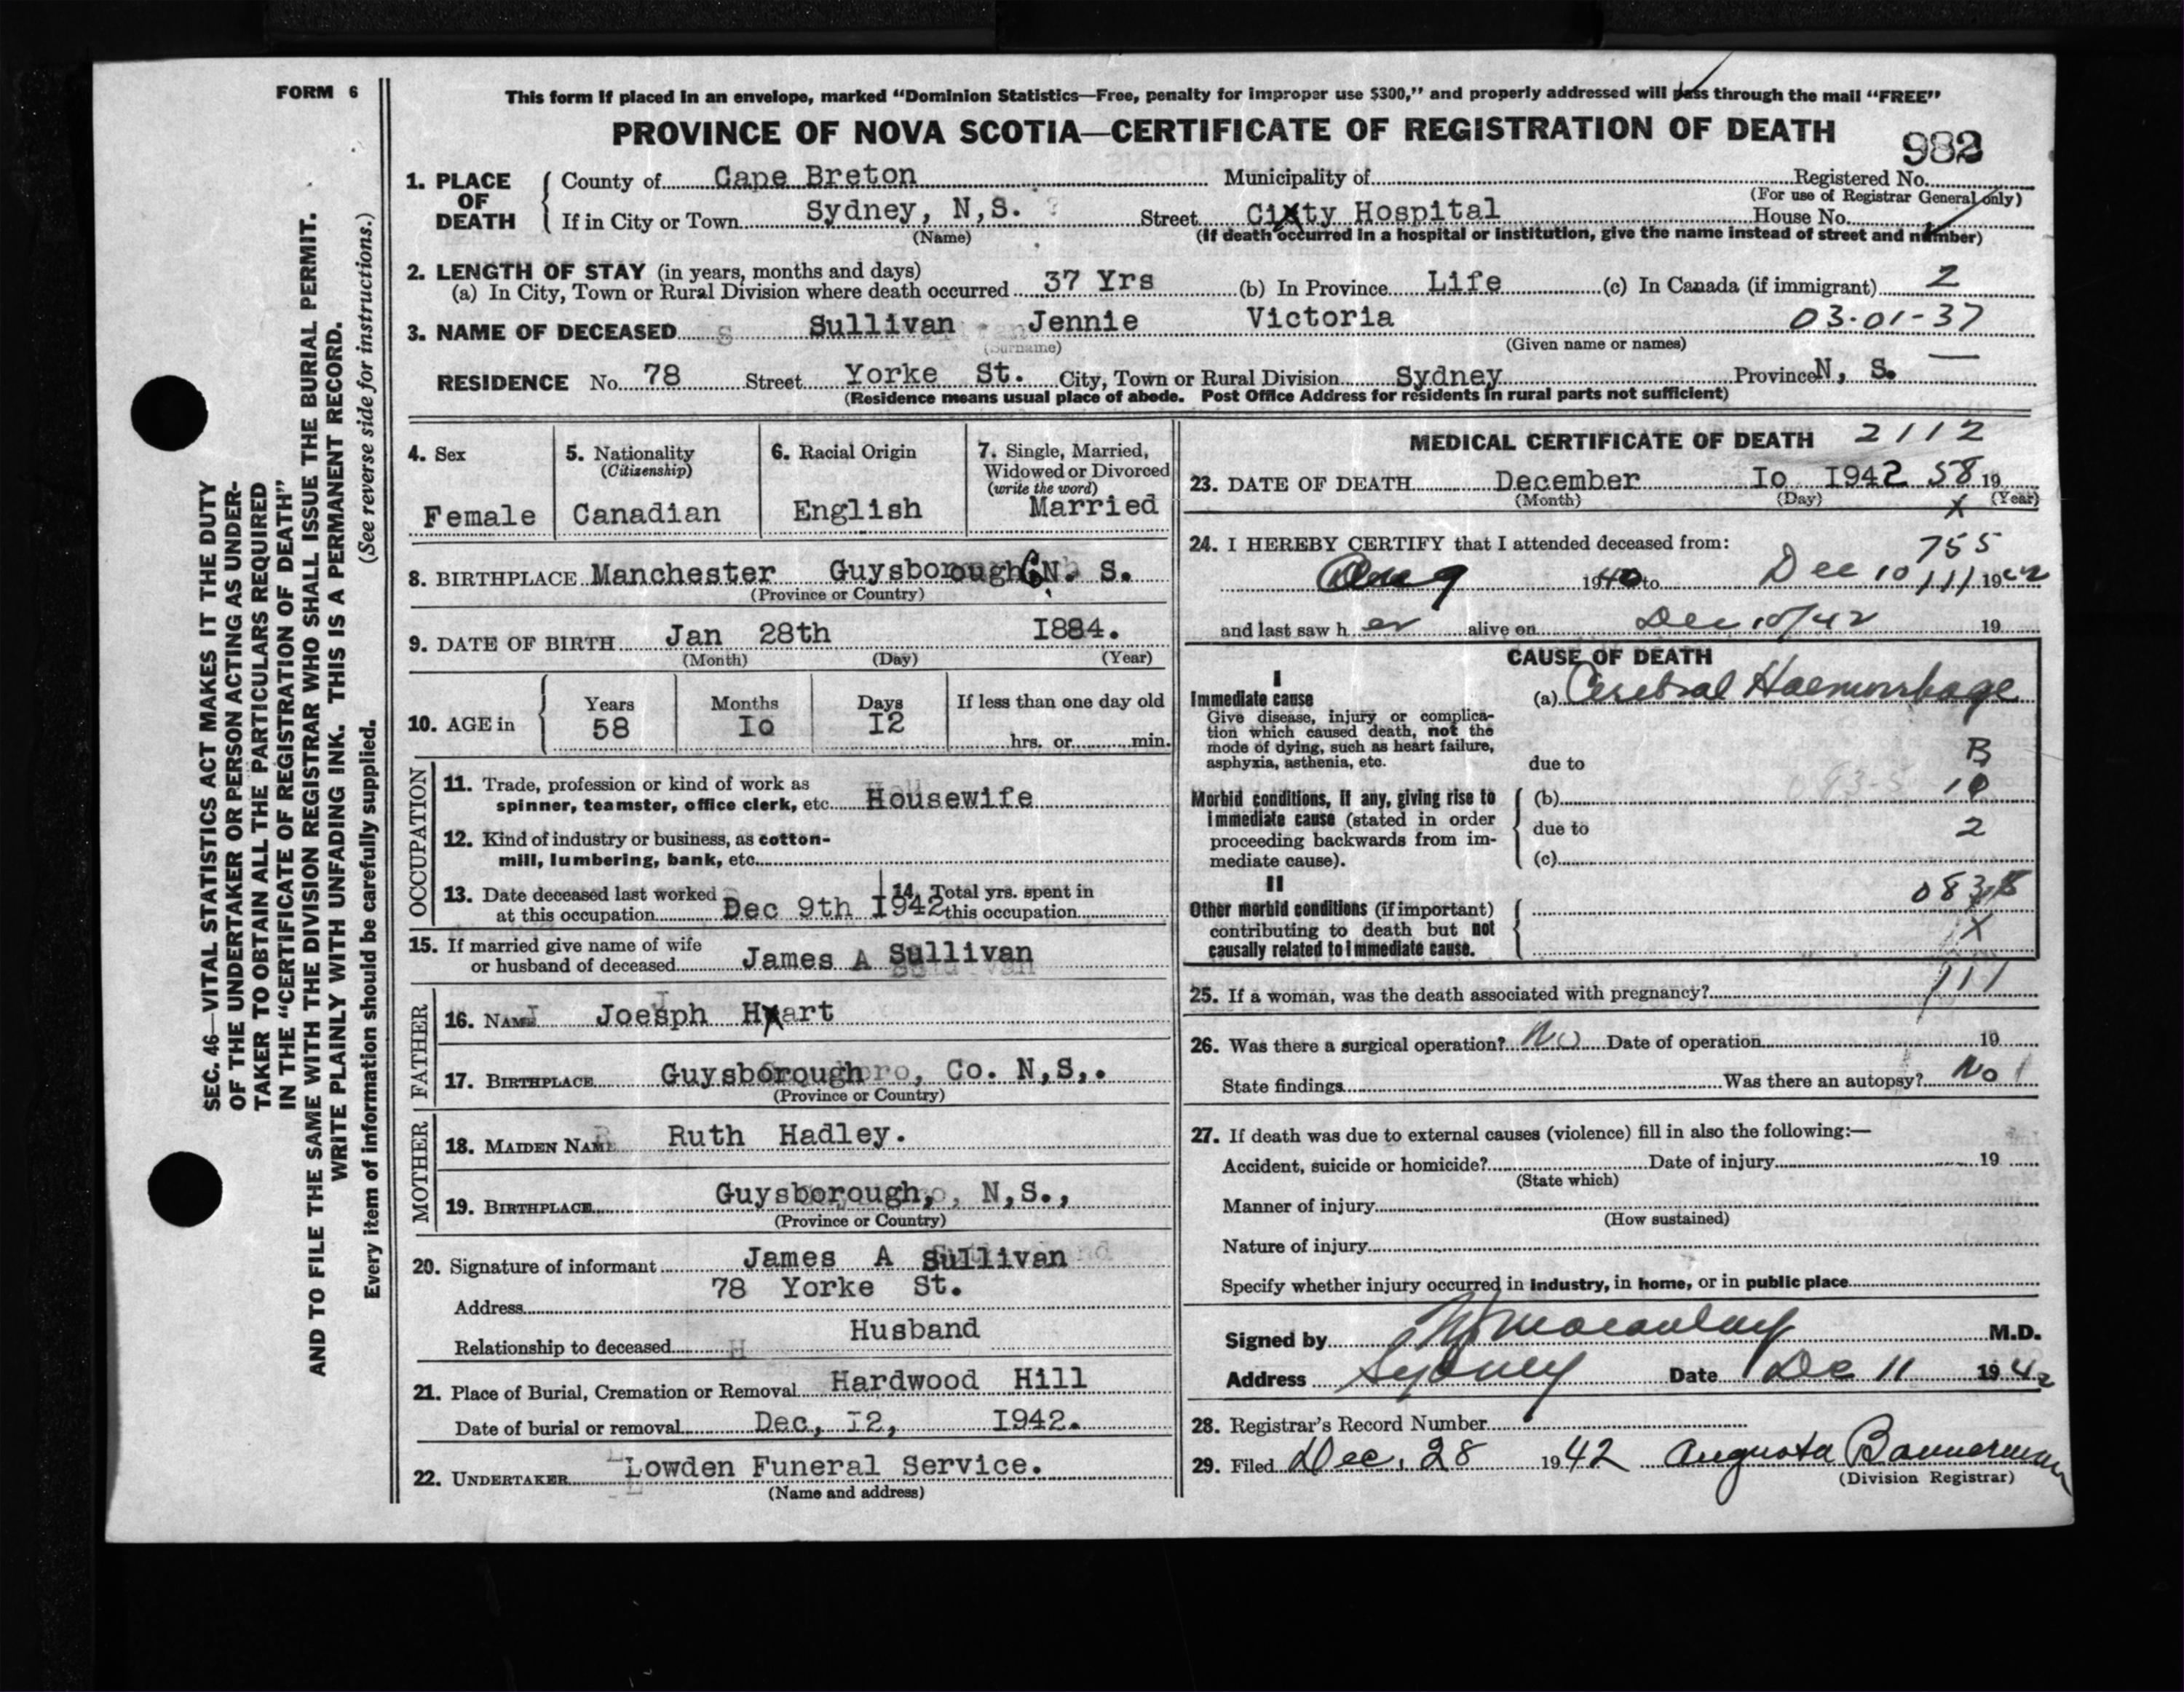 FORM 6
This form if placed in an envelope, marked "Dominion Statistics—Free, penalty for improper use $300," and properly addressed will pass through the mail "FREE"
PROVINCE OF NOVA SCOTIA—CERTIFICATE OF REGISTRATION OF DEATH
982
1. PLACE OF DEATH
County of Cape Breton Municipality of Registered No.
(For use of Registrar General only)
If in City or Town Sydney, N,S. Street City Hospital House No.
(Name) (If death occurred in a hospital or institution, give the name instead of street and number)
2. LENGTH OF STAY (in years, months and days)
(a) In City, Town or Rural Division where death occurred 37 Yrs (b) In Province Life (c) In Canada (if immigrant) 2
3. NAME OF DECEASED Sullivan Jennie Victoria 03-01-37
(Surname) (Given name or names)
RESIDENCE No. 78 Street Yorke St. City, Town or Rural Division Sydney Province N, S.
(Residence means usual place of abode. Post Office Address for residents in rural parts not sufficient)
4. Sex
Female
5. Nationality
(Citizenship)
Canadian
6. Racial Origin
English
7. Single, Married, Widowed or Divorced
(write the word)
Married
8. BIRTHPLACE Manchester Guysborough C N. S.
(Province or Country)
9. DATE OF BIRTH Jan 28th I884.
(Month) (Day) (Year)
10. AGE in
Years Months Days If less than one day old
58 Io I2 hrs. or min.
OCCUPATION
11. Trade, profession or kind of work as
spinner, teamster, office clerk, etc. Housewife
12. Kind of industry or business, as cotton-
mill, lumbering, bank, etc.
13. Date deceased last worked
at this occupation Dec 9th I942
14. Total yrs. spent in
this occupation
15. If married give name of wife
or husband of deceased James A Sullivan
FATHER
16. NAME Joesph Hart
17. BIRTHPLACE Guysborough Co. N,S,.
(Province or Country)
MOTHER
18. MAIDEN NAME Ruth Hadley.
19. BIRTHPLACE Guysborough, N,S.,
(Province or Country)
20. Signature of informant James A Sullivan
Address 78 Yorke St.
Relationship to deceased Husband
21. Place of Burial, Cremation or Removal Hardwood Hill
Date of burial or removal Dec, I2, I942.
22. UNDERTAKER Lowden Funeral Service.
(Name and address)
MEDICAL CERTIFICATE OF DEATH 2112
23. DATE OF DEATH December Io I942 58 19
(Month) (Day) X (Year)
24. I HEREBY CERTIFY that I attended deceased from:
755
Aug 1940 to Dec 10 111 1942
and last saw h er alive on Dec 10/42 19
CAUSE OF DEATH
I
Immediate cause
Give disease, injury or complica-
tion which caused death, not the
mode of dying, such as heart failure,
asphyxia, asthenia, etc.
(a) Cerebral Haemorrhage
B
due to
Morbid conditions, if any, giving rise to
immediate cause (stated in order
proceeding backwards from im-
mediate cause).
(b) 10
due to 2
(c)
II
Other morbid conditions (if important)
contributing to death but not
causally related to immediate cause.
083
X
25. If a woman, was the death associated with pregnancy? 111
26. Was there a surgical operation? No Date of operation 19
State findings Was there an autopsy? No
27. If death was due to external causes (violence) fill in also the following:—
Accident, suicide or homicide? Date of injury 19
(State which)
Manner of injury
(How sustained)
Nature of injury
Specify whether injury occurred in industry, in home, or in public place
Signed by Macaulay M.D.
Address Sydney Date Dec 11 1942
28. Registrar's Record Number
29. Filed Dec. 28 1942 Augusta Bannerman
(Division Registrar)
SEC. 46—VITAL STATISTICS ACT MAKES IT THE DUTY
OF THE UNDERTAKER OR PERSON ACTING AS UNDER-
TAKER TO OBTAIN ALL THE PARTICULARS REQUIRED
IN THE "CERTIFICATE OF REGISTRATION OF DEATH"
AND TO FILE THE SAME WITH THE DIVISION REGISTRAR WHO SHALL ISSUE THE BURIAL PERMIT.
WRITE PLAINLY WITH UNFADING INK. THIS IS A PERMANENT RECORD.
Every item of information should be carefully supplied. (See reverse side for instructions.)